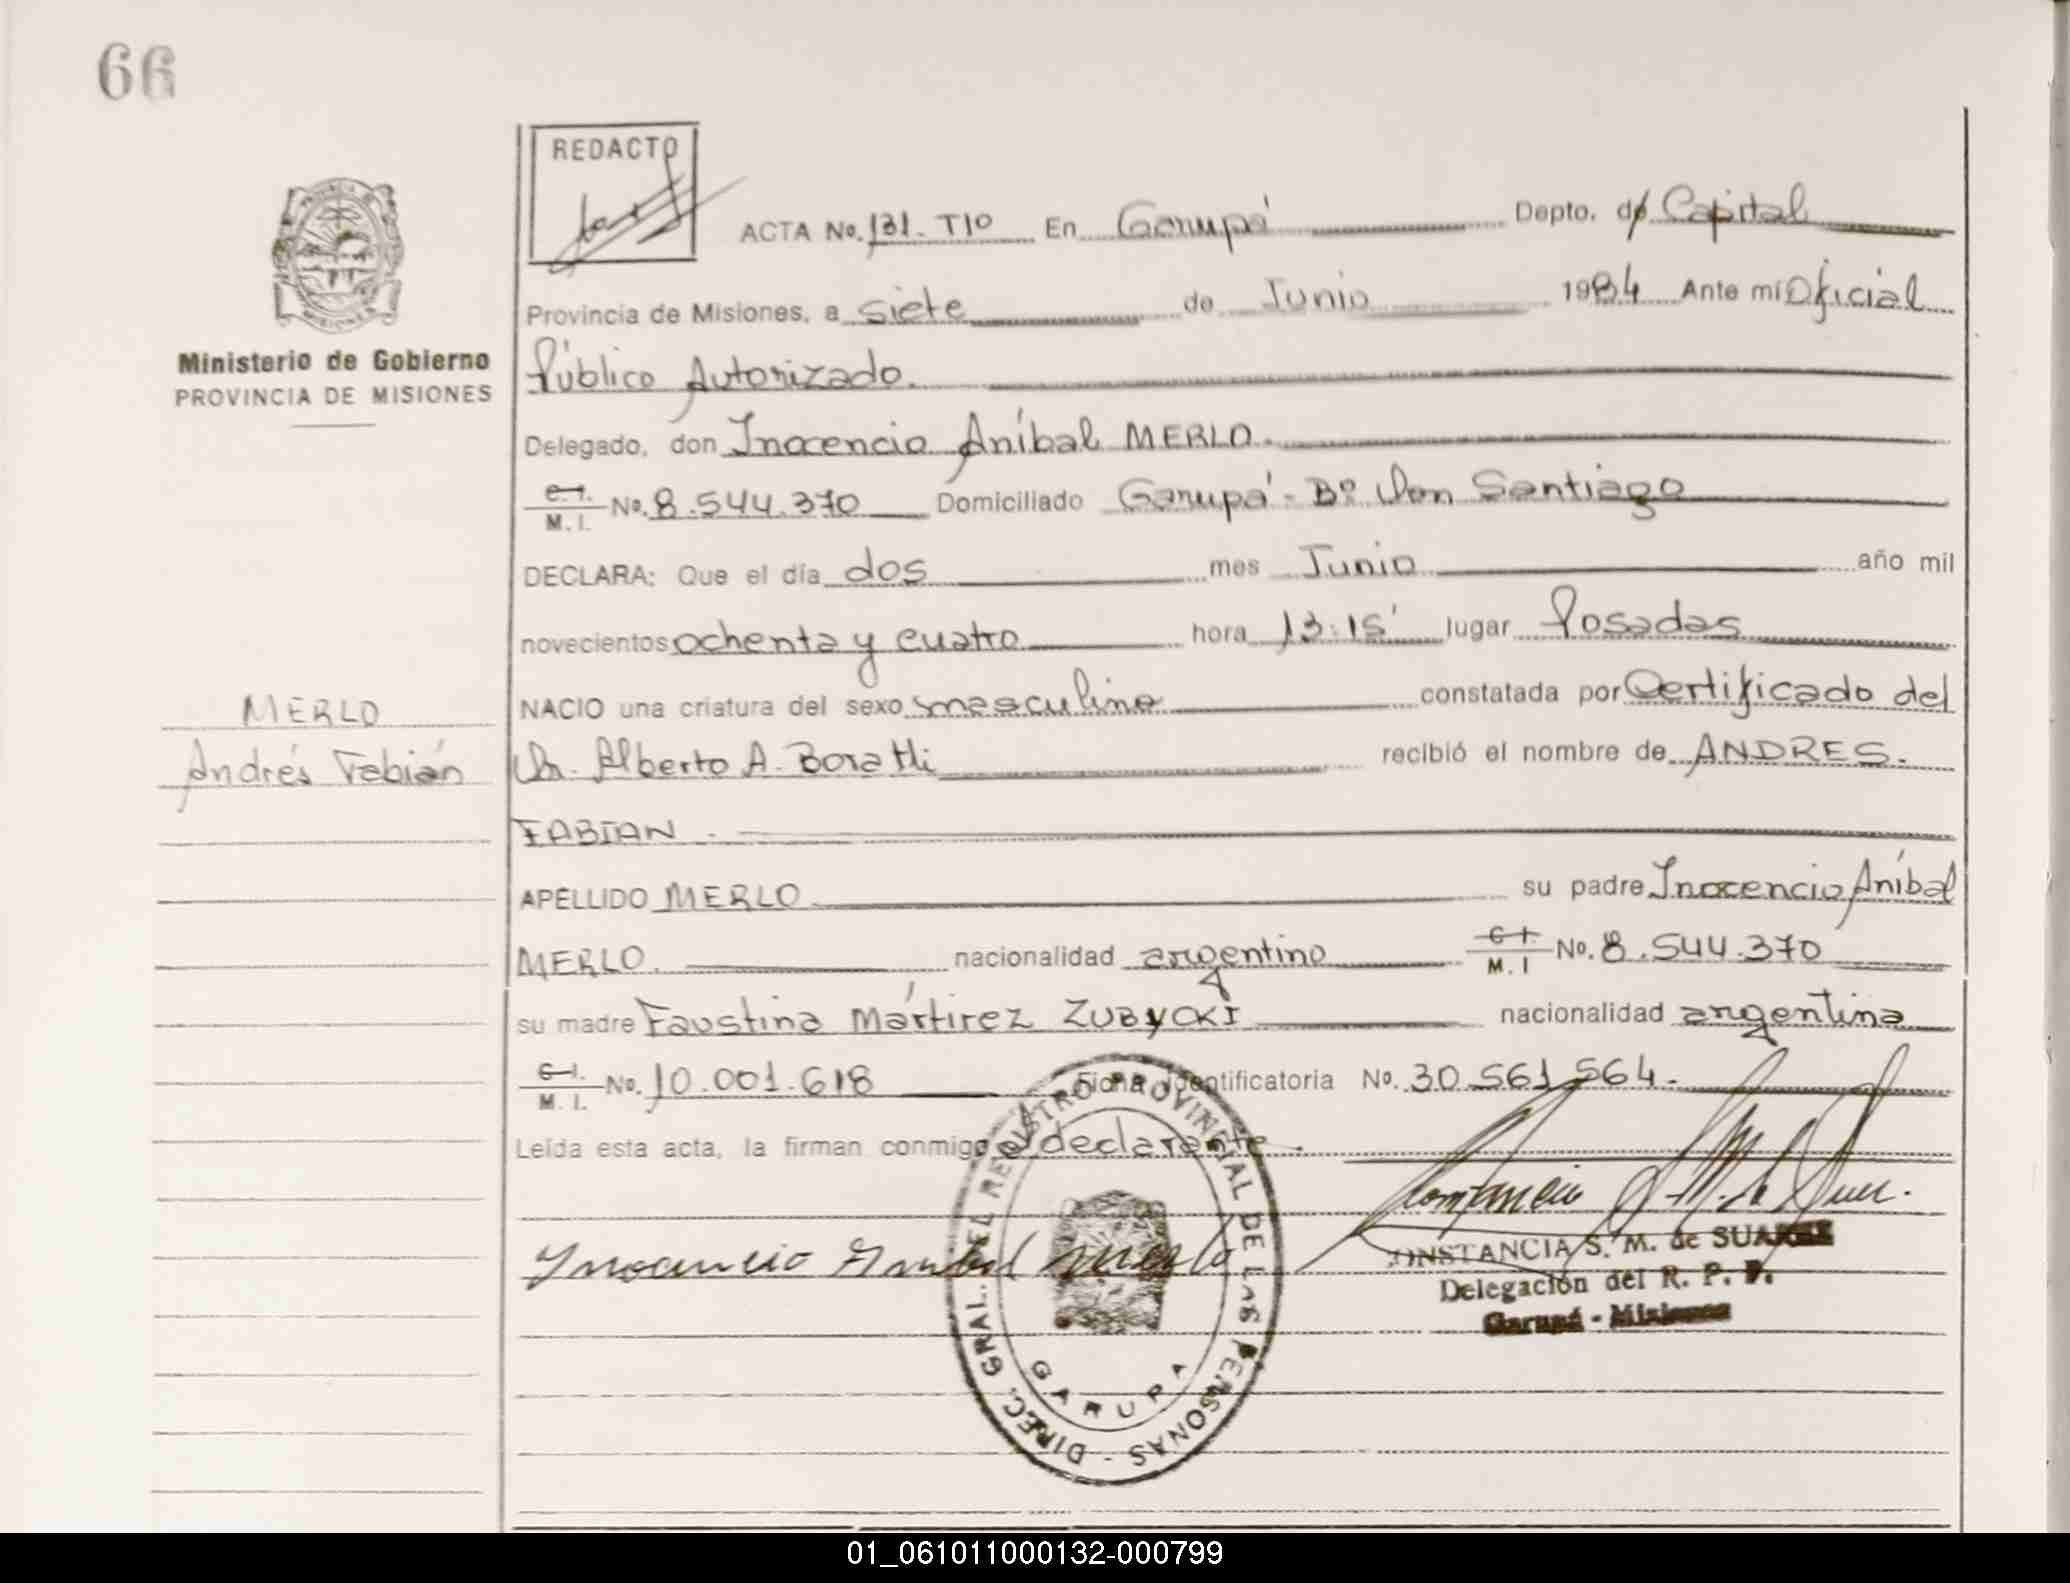 66
REDACTO
ACTA No. 131. T10 En Garupá Depto. de Capital
Provincia de Misiones, a siete de Junio 1984 Ante mi Oficial
Público Autorizado.
Ministerio de Gobierno
PROVINCIA DE MISIONES
Delegado, don Inocencio Aníbal MERLO.
C.I. M.I. No. 8.544.370 Domiciliado Garupá - Bº Don Santiago
DECLARA: Que el día dos mes Junio año mil
novecientos ochenta y cuatro hora 13:15' lugar Posadas
NACIO una criatura del sexo masculino constatada por Certificado del
MERLO
Andrés Fabián
Dr. Alberto A. Boratti recibió el nombre de ANDRES.
FABIAN.
APELLIDO MERLO su padre Inocencio Aníbal
MERLO. nacionalidad argentino C.I. M.I No. 8.544.370
su madre Faustina Mártirez ZUBYCKI nacionalidad argentina
C.I. M.I. No. 10.001.618 Ficha identificatoria No. 30.561.564.
Leída esta acta, la firman conmigo el declarante.
Inocencio Anibal Merlo
CONSTANCIA S. M. de SUAREZ
Delegación del R. P. P.
Garupá - Misiones
DIREC. GRAL. DEL REGISTRO PROVINCIAL DE LAS PERSONAS -
GARUPA
01_061011000132-000799